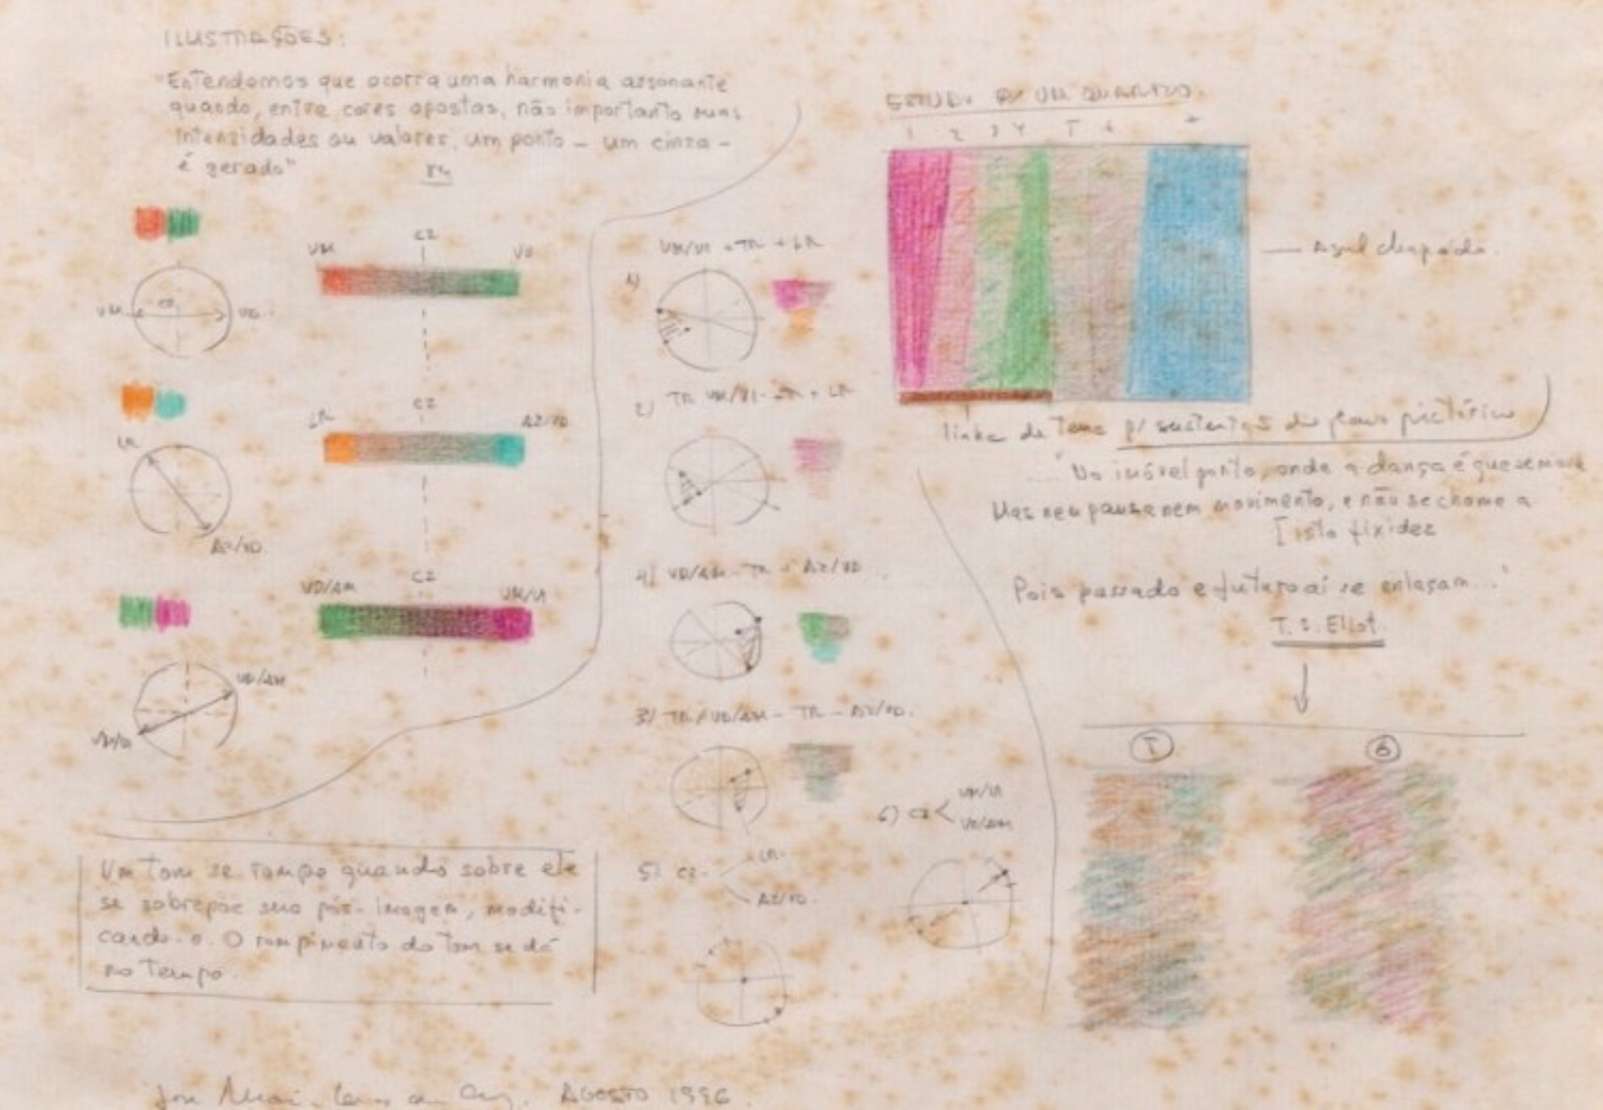 ILUSTRAÇÕES:
"Entendemos que ocorra uma harmonia assonante
quando, entre cores opostas, não importanto suas
intensidades ou valores, um ponto - um cinza -
é gerado"
VM CZ VD
VM CZ VD
LR CZ AZ/VD
LR
AZ/VD
VD/AM CZ VM/VI
VD/AM
Um Tom se rompe quando sobre ele
se sobrepõe sua pós-imagem, modifi-
cando-o. O rompimento do Tom se dá
no Tempo.
1) VM/VI + TR + LR
2) TR VM/VI - TR + LR
4) VD/AM - TR - AZ/VD
3) TR/VD/AM - TR - AZ/VD.
5) CZ LR
AZ/VD.
6) CZ < VM/VI
VD/AM
ESTUDO P/ UM QUADRO
1 2 3 4 5 6
Azul
linha de Terra p/ sustentação do plano pictórico
..."No imóvel ponto, onde a dança é que se move
Mas nem pausa nem movimento, e não se chame a
[isto fixidez
Pois passado e futuro aí se enlaçam..."
T. S. Eliot.
5 6
AGOSTO 1996